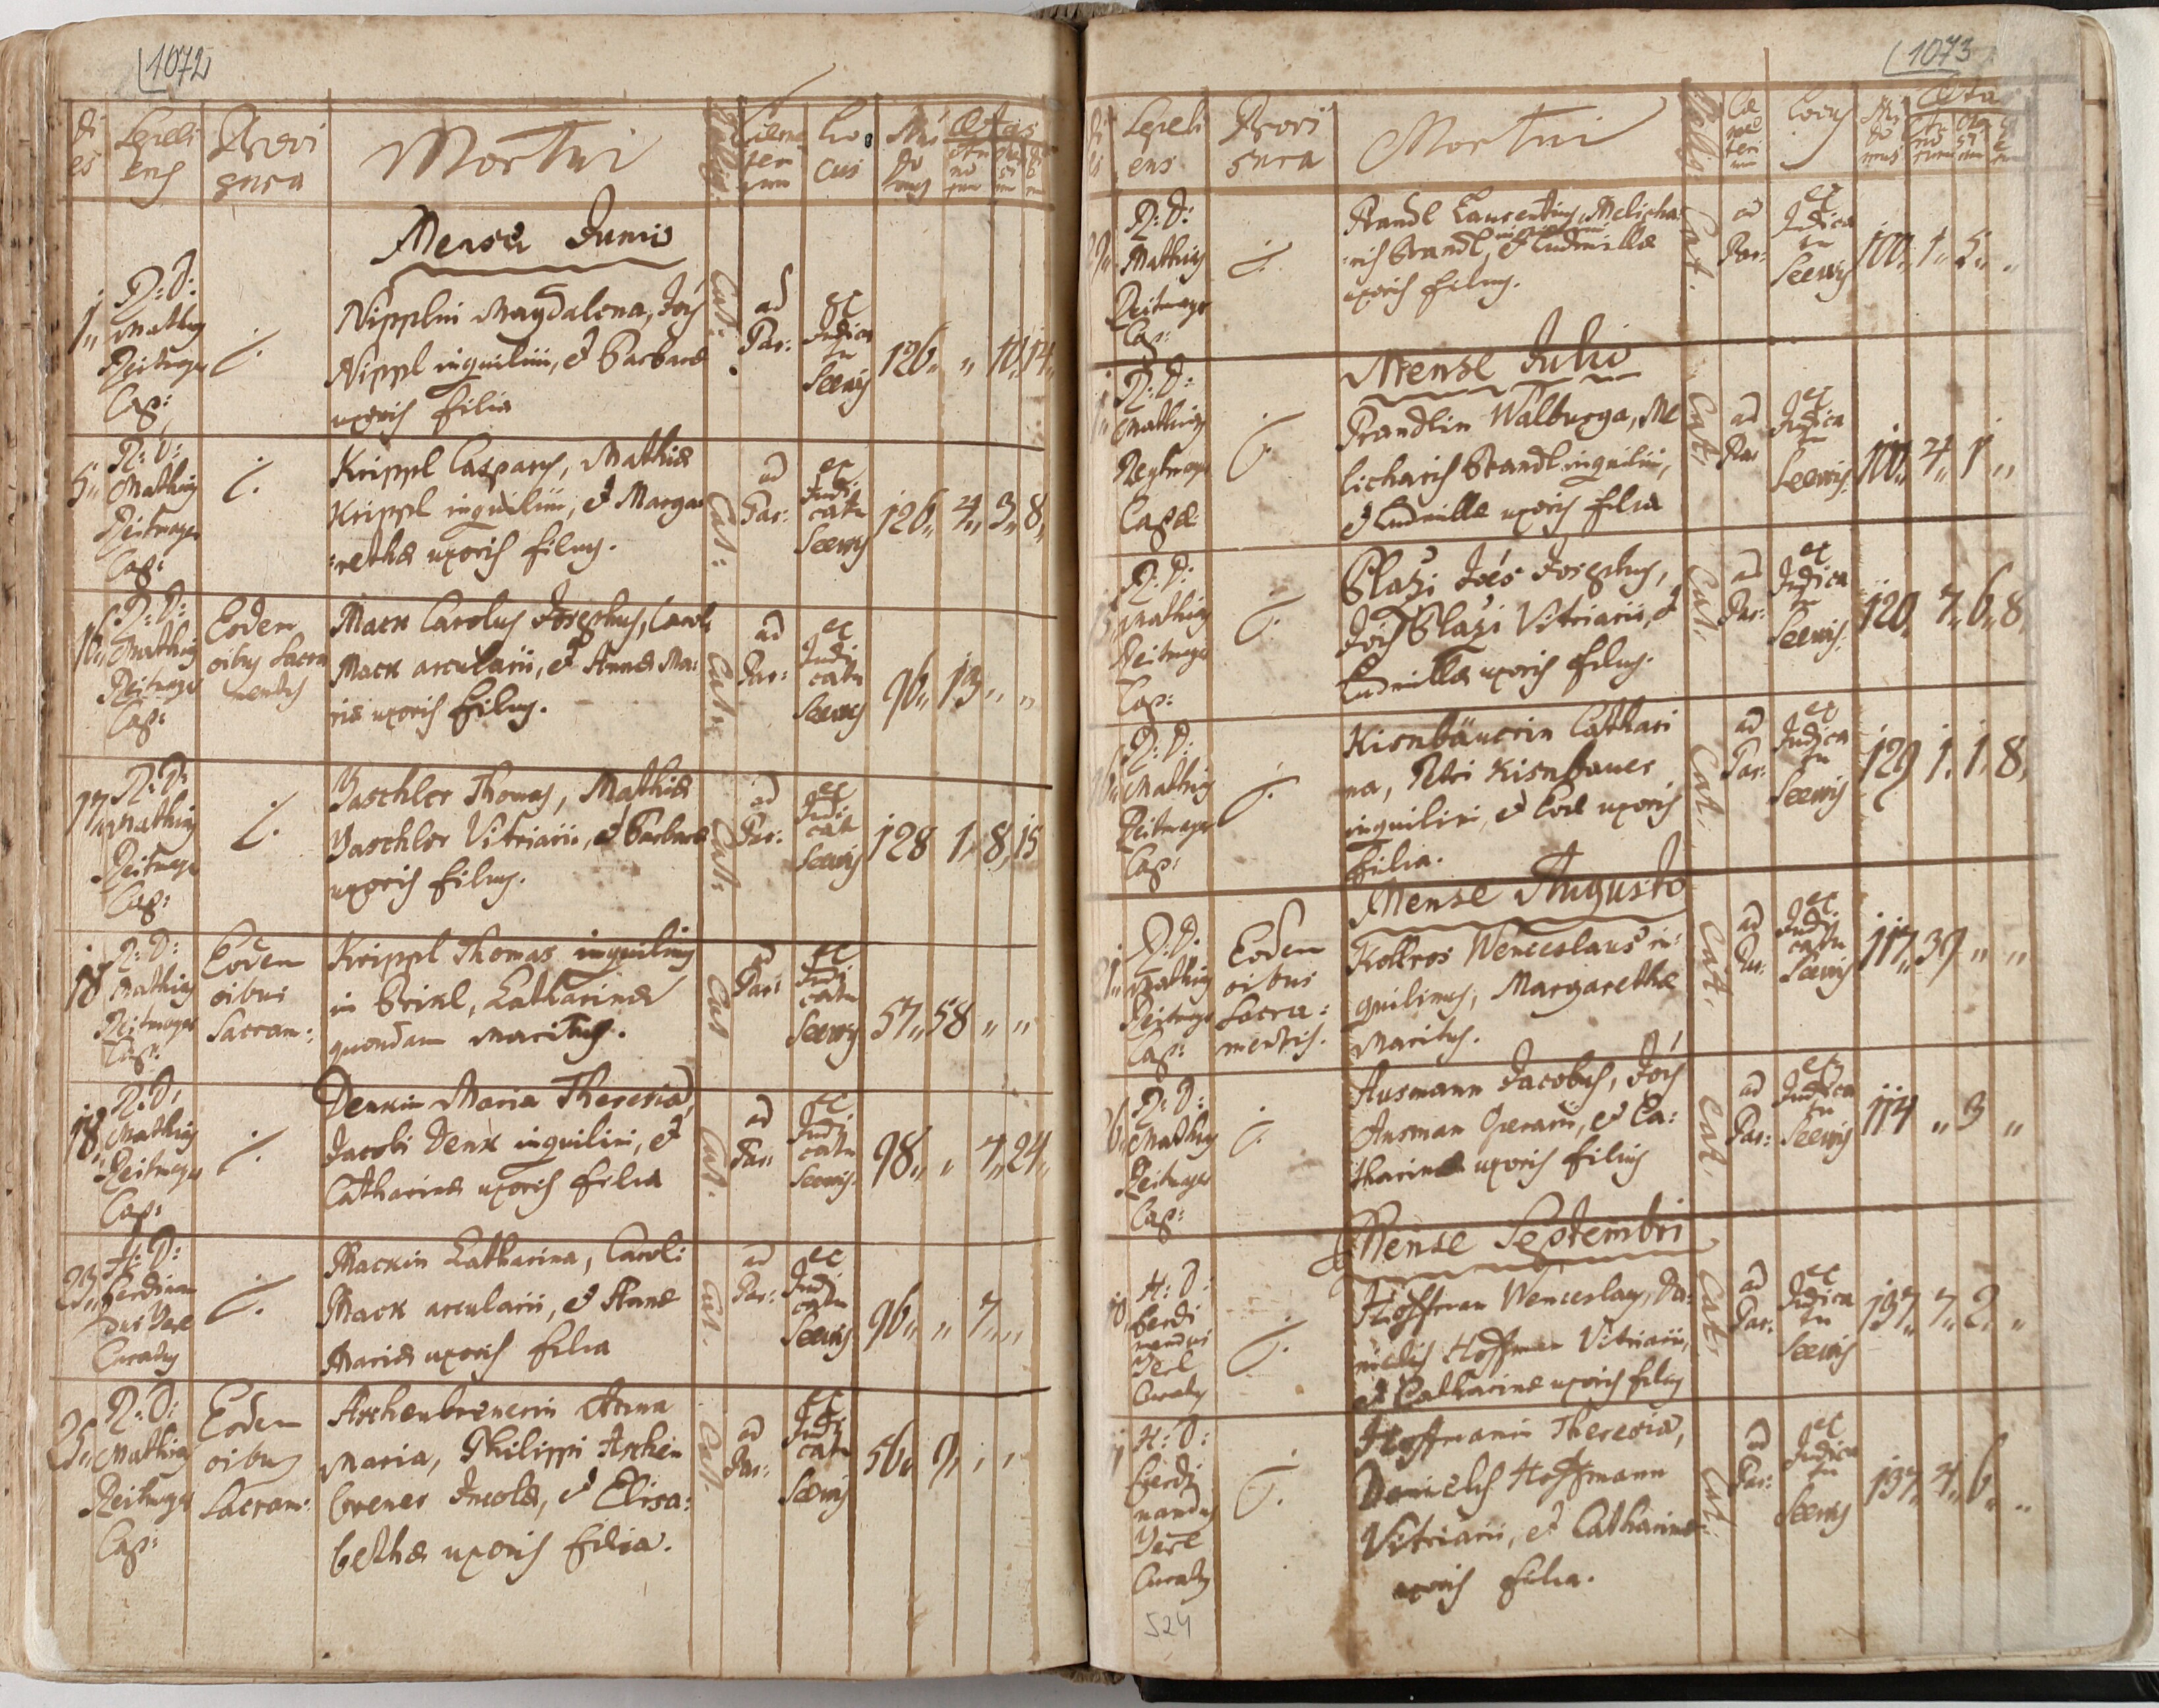 1072
Di es
Sepeli ens
Provi sura
Mortui
Relig:
Cœme terium
Lo cus
Nrus Do mus
Ætas
An no rum
Men si um
Di e rum
Mense Junio
1,, R: D: Mathias Reitmayer Cap:
Nipplin Magdalena, Jois
Nippl inquilini, et Barbaræ
uxoris filia
Cat: ad Par: ex Judica tu Seewis 126,, ,, 10,, 14,,
5,, R: D: Mathias Reitmayer Cap:
Krippl Casparus, Mathiæ
Krippl inquilini, et Marga
:rethæ uxoris filius.
Cat: ad Par: ex Judi catu Seewis 126,, 4,, 3,, 8,,
16,, R: D: Mathias Reitmayer Cap:
Eodem oibus Sacra mentis
Mack Carolus Josephus, Caroli
Mack arcularii, et Annæ Ma:
riæ uxoris filius.
Cat: ad Par: ex Judi catu Seewis 96,, 13,, ,,
17,, R: D: Mathias Reitmayer Cap:
Paschler Thomas, Mathiæ
Paschler Vitriarii, et Barbaræ
uxoris filius.
Cat: ad Par: ex Judi catu Seewis 128 1,, 8,, 15
18 R: D: Mathias Reitmayer Cap:
Eodem oibus Sacram:
Krippl Thomas inquilinus
in Brikl, Catharinæ
quondam maritus.
Cat ad Par: ex Judi catu Seewis 57,, 58 ,, ,,
18,, R: D: Mathias Reitmayer Cap:
Denkin Maria Theresia,
Jacobi Denk inquilini, et
Catharinæ uxoris filia
Cat. ad Par: ex Judi catu Seewis. 98,, ,, 7,, 24,,
23,, A: D: Ferdinan dus Yerl Curatus
Mackin Catharina, Caroli
Mack arcularii, et Annæ
Mariæ uxoris filia
Cat. ad Par: ex Judi catu Seewis 96,, ,, 7,, ,,
25,, R: D: Mathias Reitmayer Cap:
Eodem oibus Sacram:
Aschenbrenerin Anna
Maria, Philippi Aschen
brener Incolæ, et Elisa:
bethæ uxoris filia.
Cat. ad Par: ex Judi catu Seewis 56,, 9,, ,, ,,
1073
Sepeli ens
Provi sura
Mortui
Relig:
Cœ me teri um
Locus
Nrus Do mus
Ætas
29,, R: D: Mathias Reitmayer Cap:
Brandl Laurentius, Melicha:
:ris Brandl inquilini, et Ludmillæ
uxoris filius.
Cat. ad Par: ex Judica tu Seewis 100,, 1,, 5,, ,,
Mense Julio
1,, R: D: Mathias Reytmayer Capæ
Prandlin Walburga, Me
licharis Brandl inquilini,
et Ludmillæ uxoris filia
Cat. ad Par ex Judica tu Seewis. 100,, 4,, 1,, ,,
R: D: Mathias Reitmayer Cap:
Blazi Joes Josephus,
Jois Blazi Vitriarii, et
Ludmillæ uxoris filius.
Cat. ad Par: ex Judica tu Seewis. 120,, 7,, 6,, 8,,
R: D: Mathias Reitmayer Cap:
Kirnbäuerin Cathari
na, Petri Kirnbauer
inquilini, et Evæ uxoris
filia.
Cat. ad Par: ex Judica tu Seewis 129 1,, 1,, 8,,
Mense Augusto
R: D: Mathias Reitmayer Cap:
Eodem oibus Sacra: mentis.
Kollros Wenceslaus in:
quilinus, Margarethæ
maritus.
Cat. ad Par: ex Judi catu Seewis 117,, 39 ,, ,,
R: D: Mathias Reitmayer Cap:
Ausmann Jacobus, Jois
Ausman Operarii, et Ca:
tharinæ uxoris filius
Cat. ad Par: ex Judica tu Seewis 114 ,, 3 ,,
Mense Septembri
A: D: Ferdi nandus Yerl Curatus
Hoffman Wenceslaus, Da:
nielis Hoffman Vitriarii,
et Catharinæ uxoris filius
Cat. ad Par: ex Judica tu Seewis 137,, 7,, 2,, ,,
A: D: Ferdi nandus Yerl Curatus
Hoffmanin Theresia,
Danielis Hoffmann
Vitriarii, et Catharinæ
uxoris filia.
Cat. ad Par: ex Judica tu Seewis 137,, 4,, 6,, ,,
524